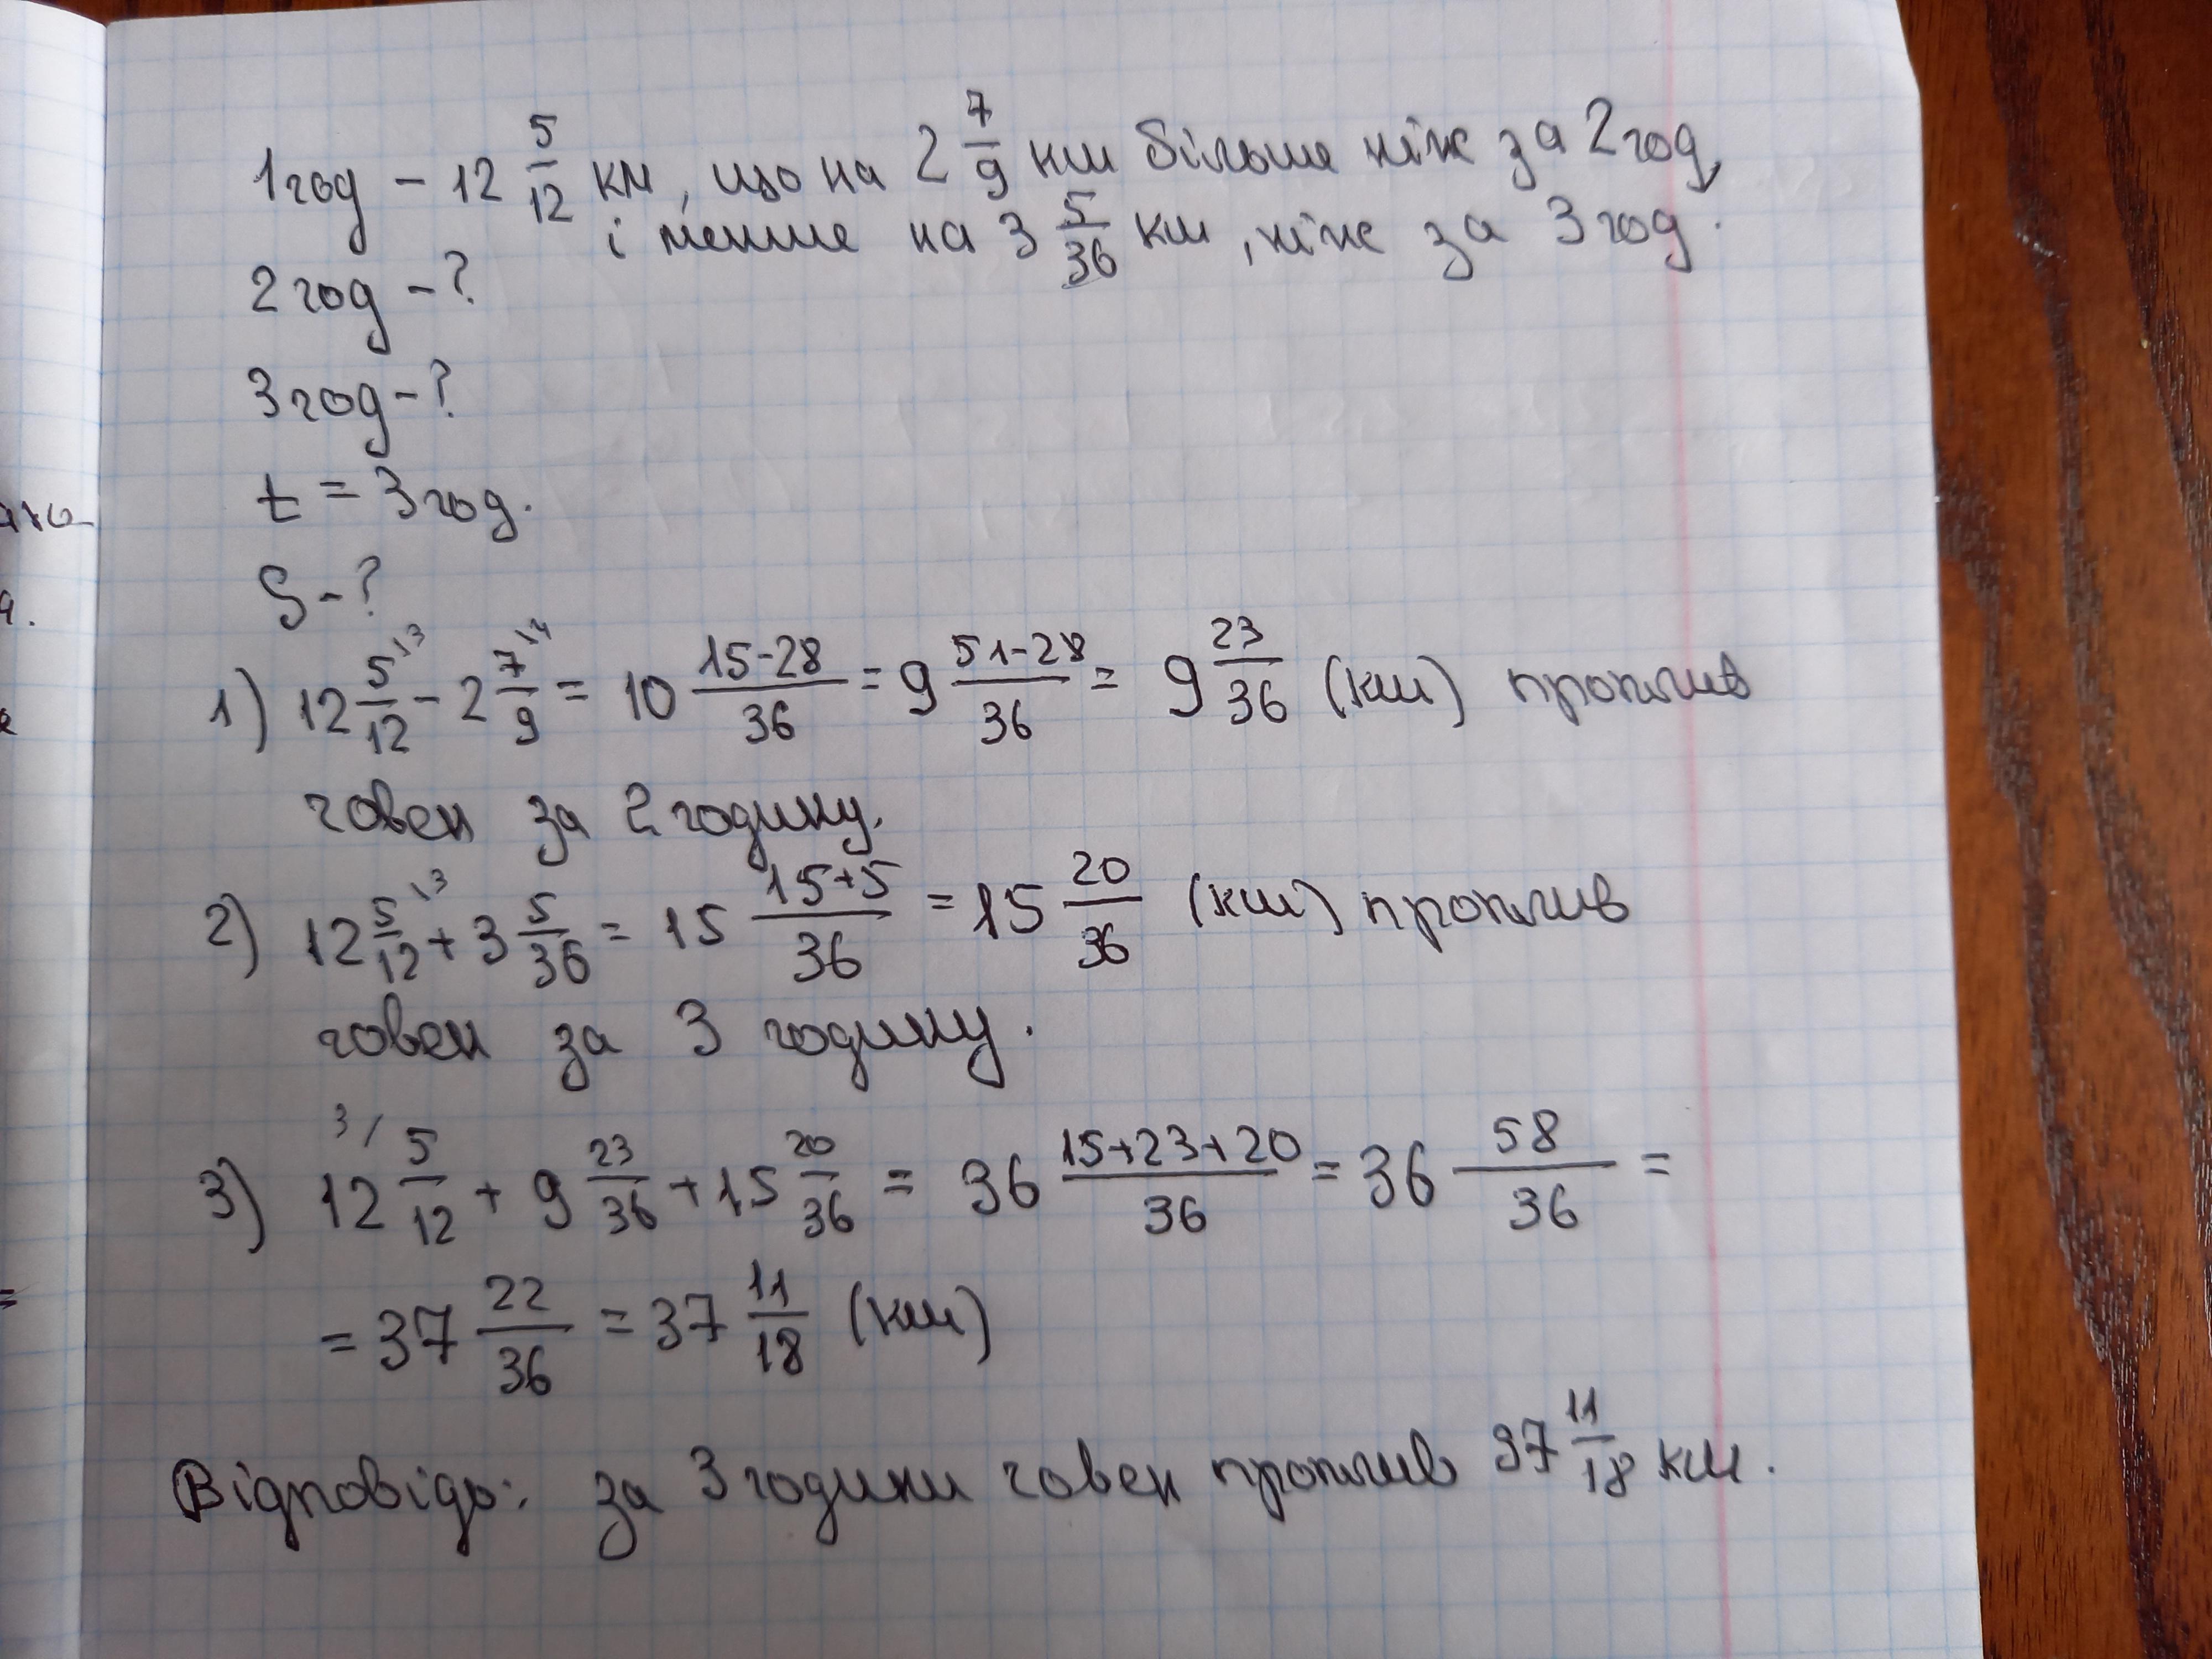 1 год – 12 5/12 км, що на 2 7/9 км більше ніж за 2 год,
і менше на 3 5/36 км, ніж за 3 год.
2 год – ?
3 год – ?
t = 3 год.
S – ?
1) 12 5\3/12 – 2 7\4/9 = 10 15-28/36 = 9 51-28/36 = 9 23/36 (км) проплив
човен за 2 годину.
2) 12 5\3/12 + 3 5/36 = 15 15+5/36 = 15 20/36 (км) проплив
човен за 3 годину.
3) 12 3/5/12 + 9 23/36 + 15 20/36 = 36 15+23+20/36 = 36 58/36 =
= 37 22/36 = 37 11/18 (км)
Відповідь: за 3 години човен проплив 37 11/18 км.